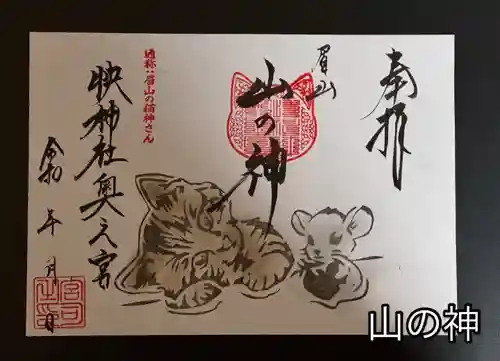 奉拝
眉山
山の神
通称:眉山の猫神さん
快神社奥之宮
令和 年 月 日
宮司之印
山の神